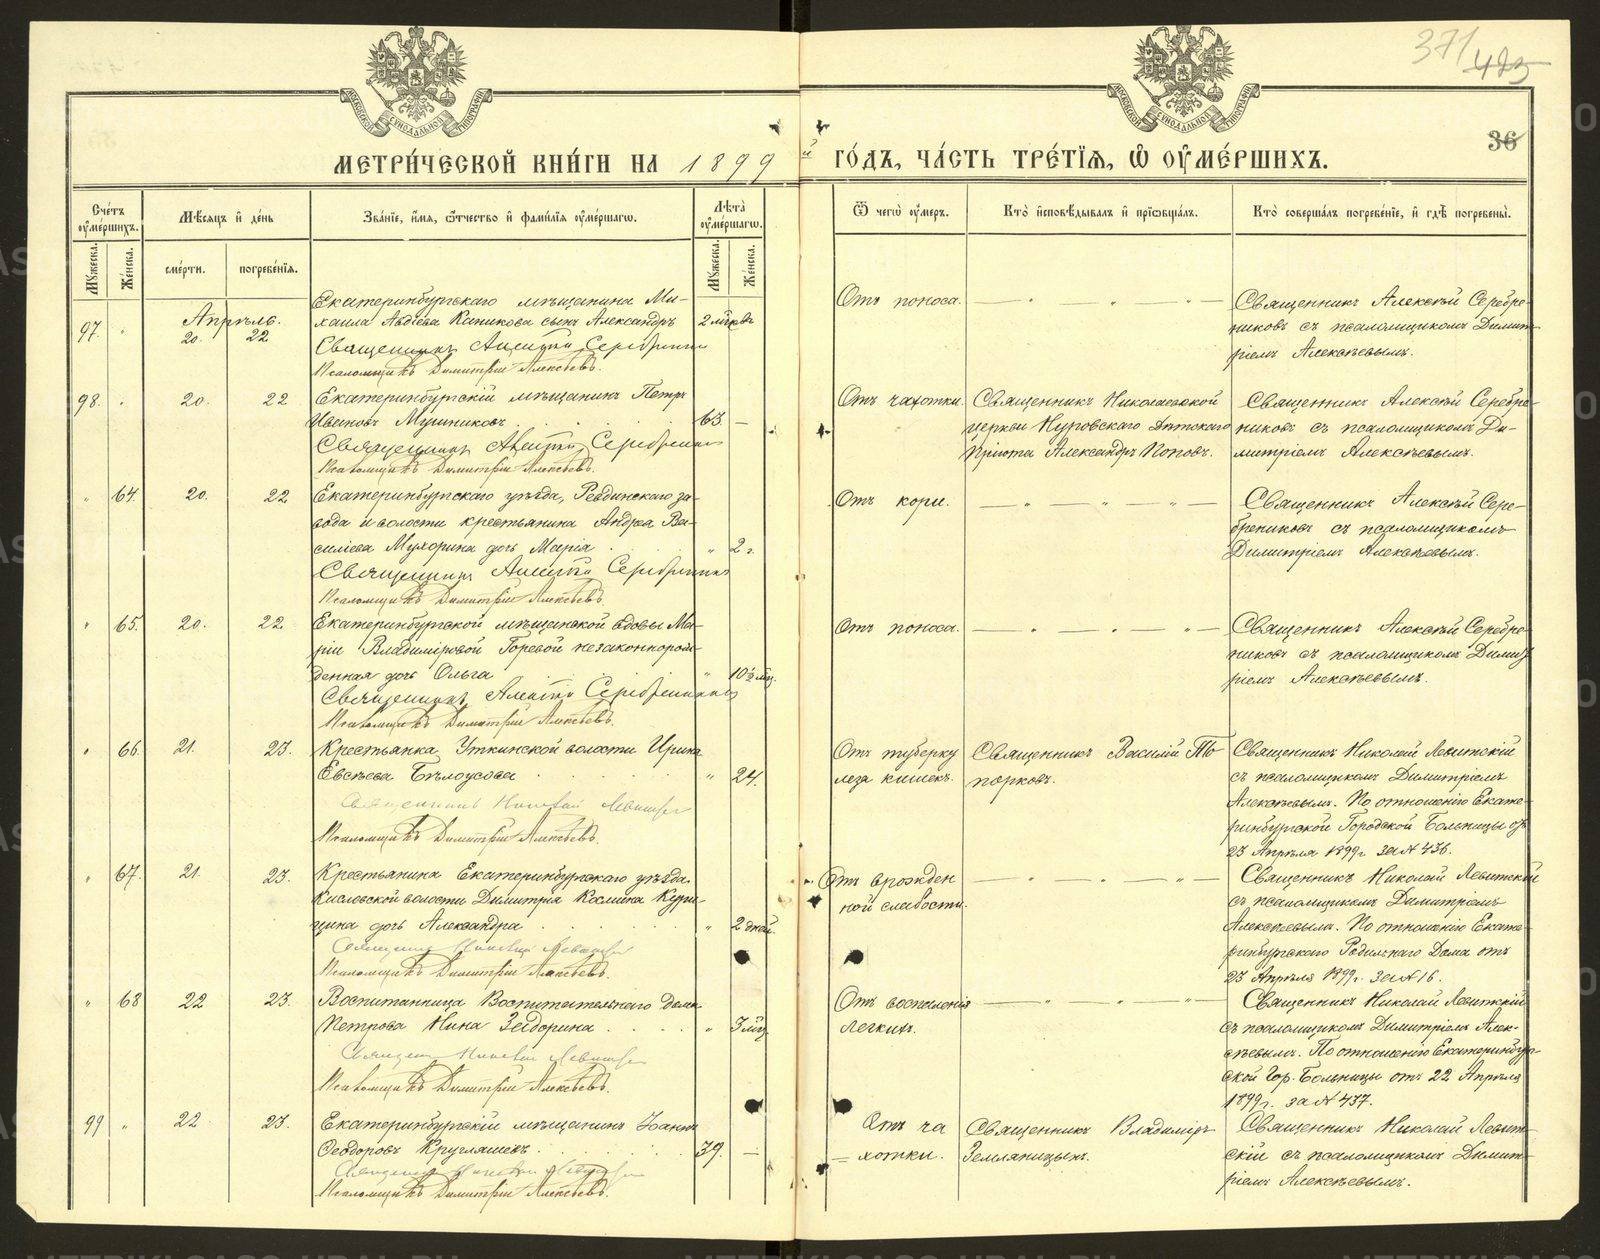 371
423
36
МЕТРИ́ЧЕСКОЙ КНИ́ГИ НА 1899 й ГО́ДЪ, ЧА́СТЬ ТРЕ́ТІѦ, Ѡ҆ ОУ҆МЕ́РШИХЪ.
Сче́тъ оу҆ме́ршихъ.
Мѣ́сѧцъ и҆ де́нь
Зва́нїе, и҆́мѧ, ѻ҆́тчество и҆ фами́лїѧ оу҆ме́ршагѡ.
Лѣ́та оу҆ме́ршагѡ.
Ѿ чегѡ̀ оу҆́меръ.
Кто̀ и҆сповѣ́дывалъ и҆ прїѡбща́лъ.
Кто̀ соверша́лъ погребе́нїе, и҆ гдѣ̀ погребены̀.
Мꙋ́жеска.
Же́нска.
сме́рти.
погребе́нїѧ.
Мꙋ́жеска.
Же́нска.
97. " Апрѣль. 20. 22
Екатеринбургскаго мѣщанина Ми-
хаила Авдіева Каникова сынъ Александръ
Священникъ Алексѣй Серебренниковъ
Псаломщикъ Димитрій Алексѣевъ.
Отъ поноса.
Священникъ Алексѣй Серебре-
никовъ съ псаломщикомъ Димит-
ріемъ Алексѣевымъ.
98. " 20. 22
Екатеринбургскій мѣщанинъ Петръ
Ивановъ Мушниковъ 63. —
Священникъ Алексѣй Серебренниковъ
Псаломщикъ Димитрій Алексѣевъ.
Отъ чахотки.
Священникъ Николаевской
церкви Нуровскаго Дѣтскаго
Пріюта Александръ Поповъ.
Священникъ Алексѣй Серебре-
никовъ съ псаломщикомъ Ди-
митріемъ Алексѣевымъ.
" 64. 20. 22
Екатеринбургскаго уѣзда, Ревдинскаго за-
вода и волости крестьянина Андрея Ва-
силіева Мухорина дочь Марія " 2 г.
Священникъ Алексѣй Серебренниковъ
Псаломщикъ Димитрій Алексѣевъ.
Отъ кори.
Священникъ Алексѣй Сере-
брениковъ съ псаломщикомъ
Димитріемъ Алексѣевымъ.
" 65. 20. 22.
Екатеринбургской мѣщанской вдовы Ма-
ріи Владиміровой Горевой незаконнорож-
денная дочь Ольга " 10½ мц.
Священникъ Алексѣй Серебренниковъ
Псаломщикъ Димитрій Алексѣевъ.
Отъ поноса.
Священникъ Алексѣй Серебре-
никовъ съ псаломщикомъ Димит-
ріемъ Алексѣевымъ.
" 66 21. 23.
Крестьянка Уткинской волости Ирина
Евсѣева Бѣлоусова " 24.
Священникъ Николай Левитскій
Псаломщикъ Димитрій Алексѣевъ.
Отъ туберку
леза кишекъ.
Священникъ Василій То-
порковъ.
Священникъ Николай Левитскій
съ псаломщикомъ Димитріемъ
Алексѣевымъ. По отношенію Екате-
ринбургской Городской Больницы отъ
23 Апрѣля 1899 г за № 436.
" 67. 21. 23.
Крестьянина Екатеринбургскаго уѣзда
Кисловской волости Димитрія Космина
дочь Александра " 2 дней
Священникъ Николай Левитскій
Псаломщикъ Димитрій Алексѣевъ.
Отъ врожден
ной слабости.
Священникъ Николай Левитскій
съ псаломщикомъ Димитріемъ
Алексѣевымъ. По отношенію Екате-
ринбургскаго Родильнаго Дома отъ
23 Апрѣля 1899 г. за № 16.
" 68 22 23.
Воспитанница Воспитательнаго Дома
Петрова Нина Зидорина " 3 мц.
Священникъ Николай Левитскій
Псаломщикъ Димитрій Алексѣевъ.
Отъ воспаленія
легкихъ.
Священникъ Николай Левитскій
съ псаломщикомъ Димитріемъ Алек-
сѣевымъ. По отношенію Екатеринбург-
ской Гор. Больницы отъ 22 Апрѣля
1899 г. за № 437.
99 " 22 23.
Екатеринбургскій мѣщанинъ Іоаннъ
Ѳеодоровъ Кругляшевъ 39. —
Священникъ Николай Левитскій
Псаломщикъ Димитрій Алексѣевъ.
Отъ ча
= хотки.
Священникъ Владиміръ
Земляницынъ.
Священникъ Николай Левит-
скій съ псаломщикомъ Димит-
ріемъ Алексѣевымъ.